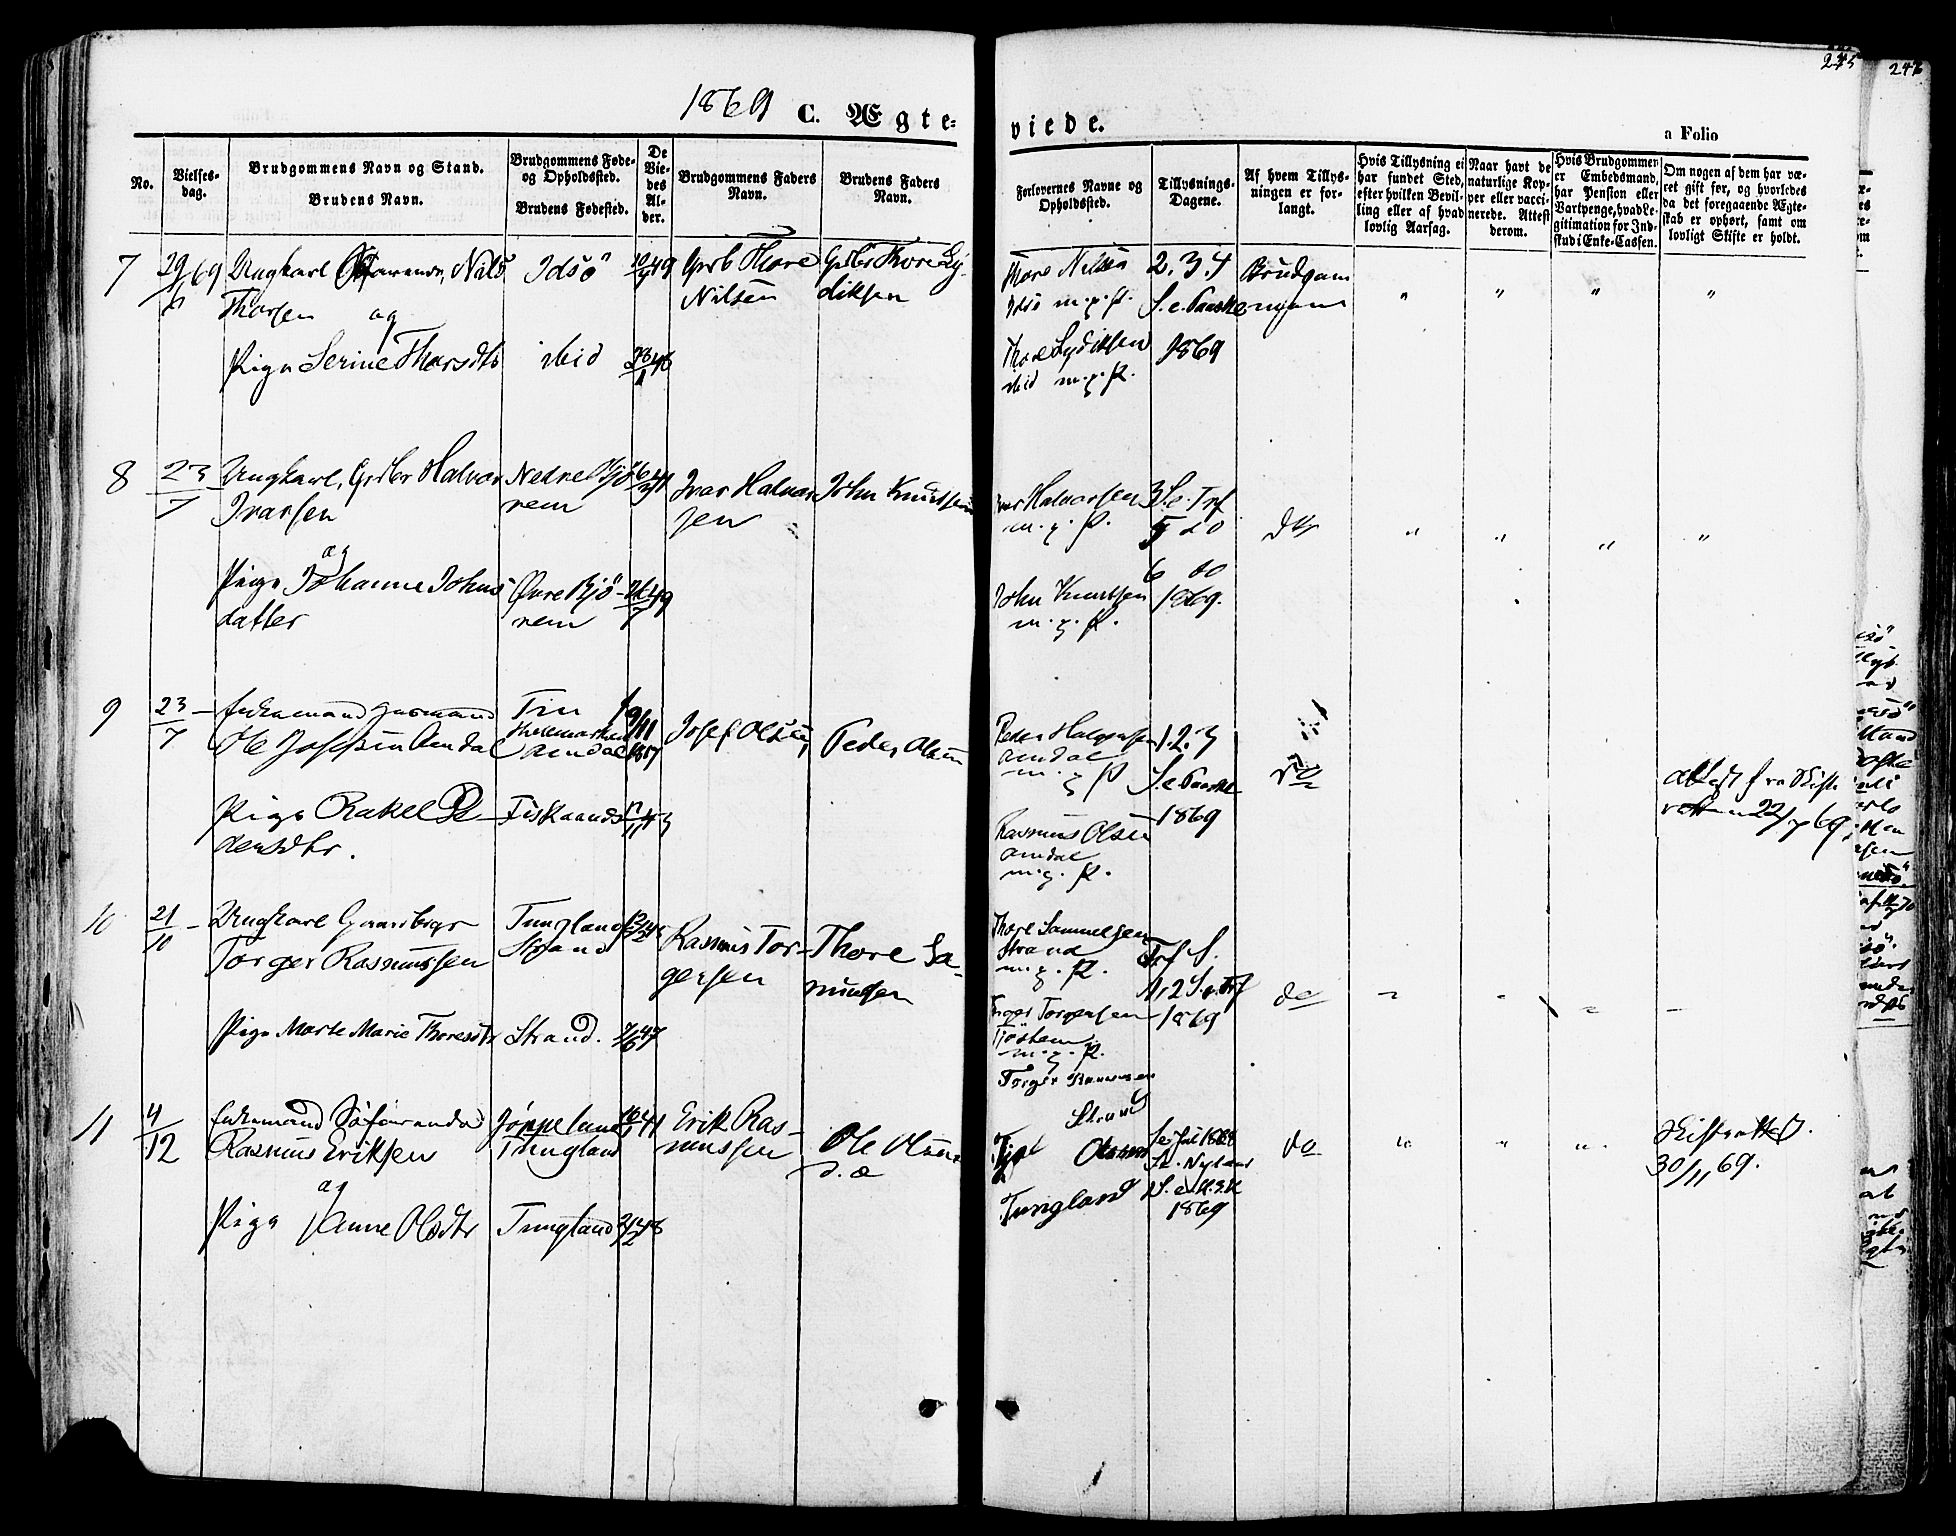 1869 C. Ægte-
viede.
245
246
a Folio
No.
Vielses-
dag.
Brudgommens Navn og Stand.
Brudens Navn.
Brudgommens Føde-
og Opholdssted.
Brudens Fødested.
De
Vie-
des
Al-
der.
Brudgommens Faders
Navn.
Brudens Faders
Navn.
Forlovernes Navne og
Opholdssted.
Tillysnings-
Dagene.
Af hvem Tillys-
ningen er for-
langt.
Hvis Tillysning ei
har fundet Sted,
efter hvilken Bevil-
ling eller af hvad
lovlig Aarsag.
Naar havt de
naturlige Kop-
per eller vacci-
nerede. Attest
derom.
Hvis Brudgommen
er Embedsmand,
har Pension eller
Vartpenge, hvad Le-
gitimation for Ind-
skud i Enke-Cassen.
Om nogen af dem har væ-
ret gift før, og hvorledes
da det foregaaende Ægte-
skab er ophørt, samt om
lovligt Skifte er holdt.
7
29/6 69
Ungkarl Nils
Thorsen og
Pige Serine Thorsdtr
Idsö
ibid
Grbr Thore
Nilsen
Grbr Thore Ly-
diksen
Thore Nilsen
Idsö m.p.P.
Thore Lydiksen
ibid m.p.P.
2.3.4
S.e.Paaske
1869
Brudgom
" " " "
8
23/7
Ungkarl, Grbr Halvor
Ivarsen
og
Pige Johanne Johns
datter
Nedre Bjö-
rem
Øvre Bjö-
rem
Ivar Halvor
sen
John Knutsen
Ivar Halvorsen
m.p.P.
John Knutsen
m.p.P.
3 S.e.Trf
5 do
6 do
1869.
do
" " " "
9
23/7
Enkemand Huusmand
Ole Josefsen Amdal
Pige Rakel Pe-
dersdtr.
Tin
Thelemarken
Amdal
Fiskaand
Josef Olsen
Peder Olsen
Peder Halvorsen
Amdal
m.p.P
Rasmus Olsen
Amdal
m.p.P.
1.2.3
S.e.Paaske
1869
do
Attest fra Skifte
retten 22/7 69
10
21/10
Ungkarl Gaardbrgr
Torger Rasmussen
Pige Marte Marie Thoresdtr
Tungland
Strand
Strand.
7/6 47
Rasmus Tor-
gersen
Thore Sa-
muelsen
Thore Samuelsen
Strand
m.p.P.
Torger Torgersen
m.p.P.
Torger Rasmussen
Strand
Trf S.
1, 2 S.e.Trf
1869
do
11
4/12
Enkemand Söfarende
Rasmus Eriksen
og
Pige Anne Olsdtr
Jörpeland
Tungland
Tungland
2/2 48
Erik Ras-
mussen
Ole Olsen
Olsen
Tungland
1869
do
" " "
Skifteattest.
30/11 69.